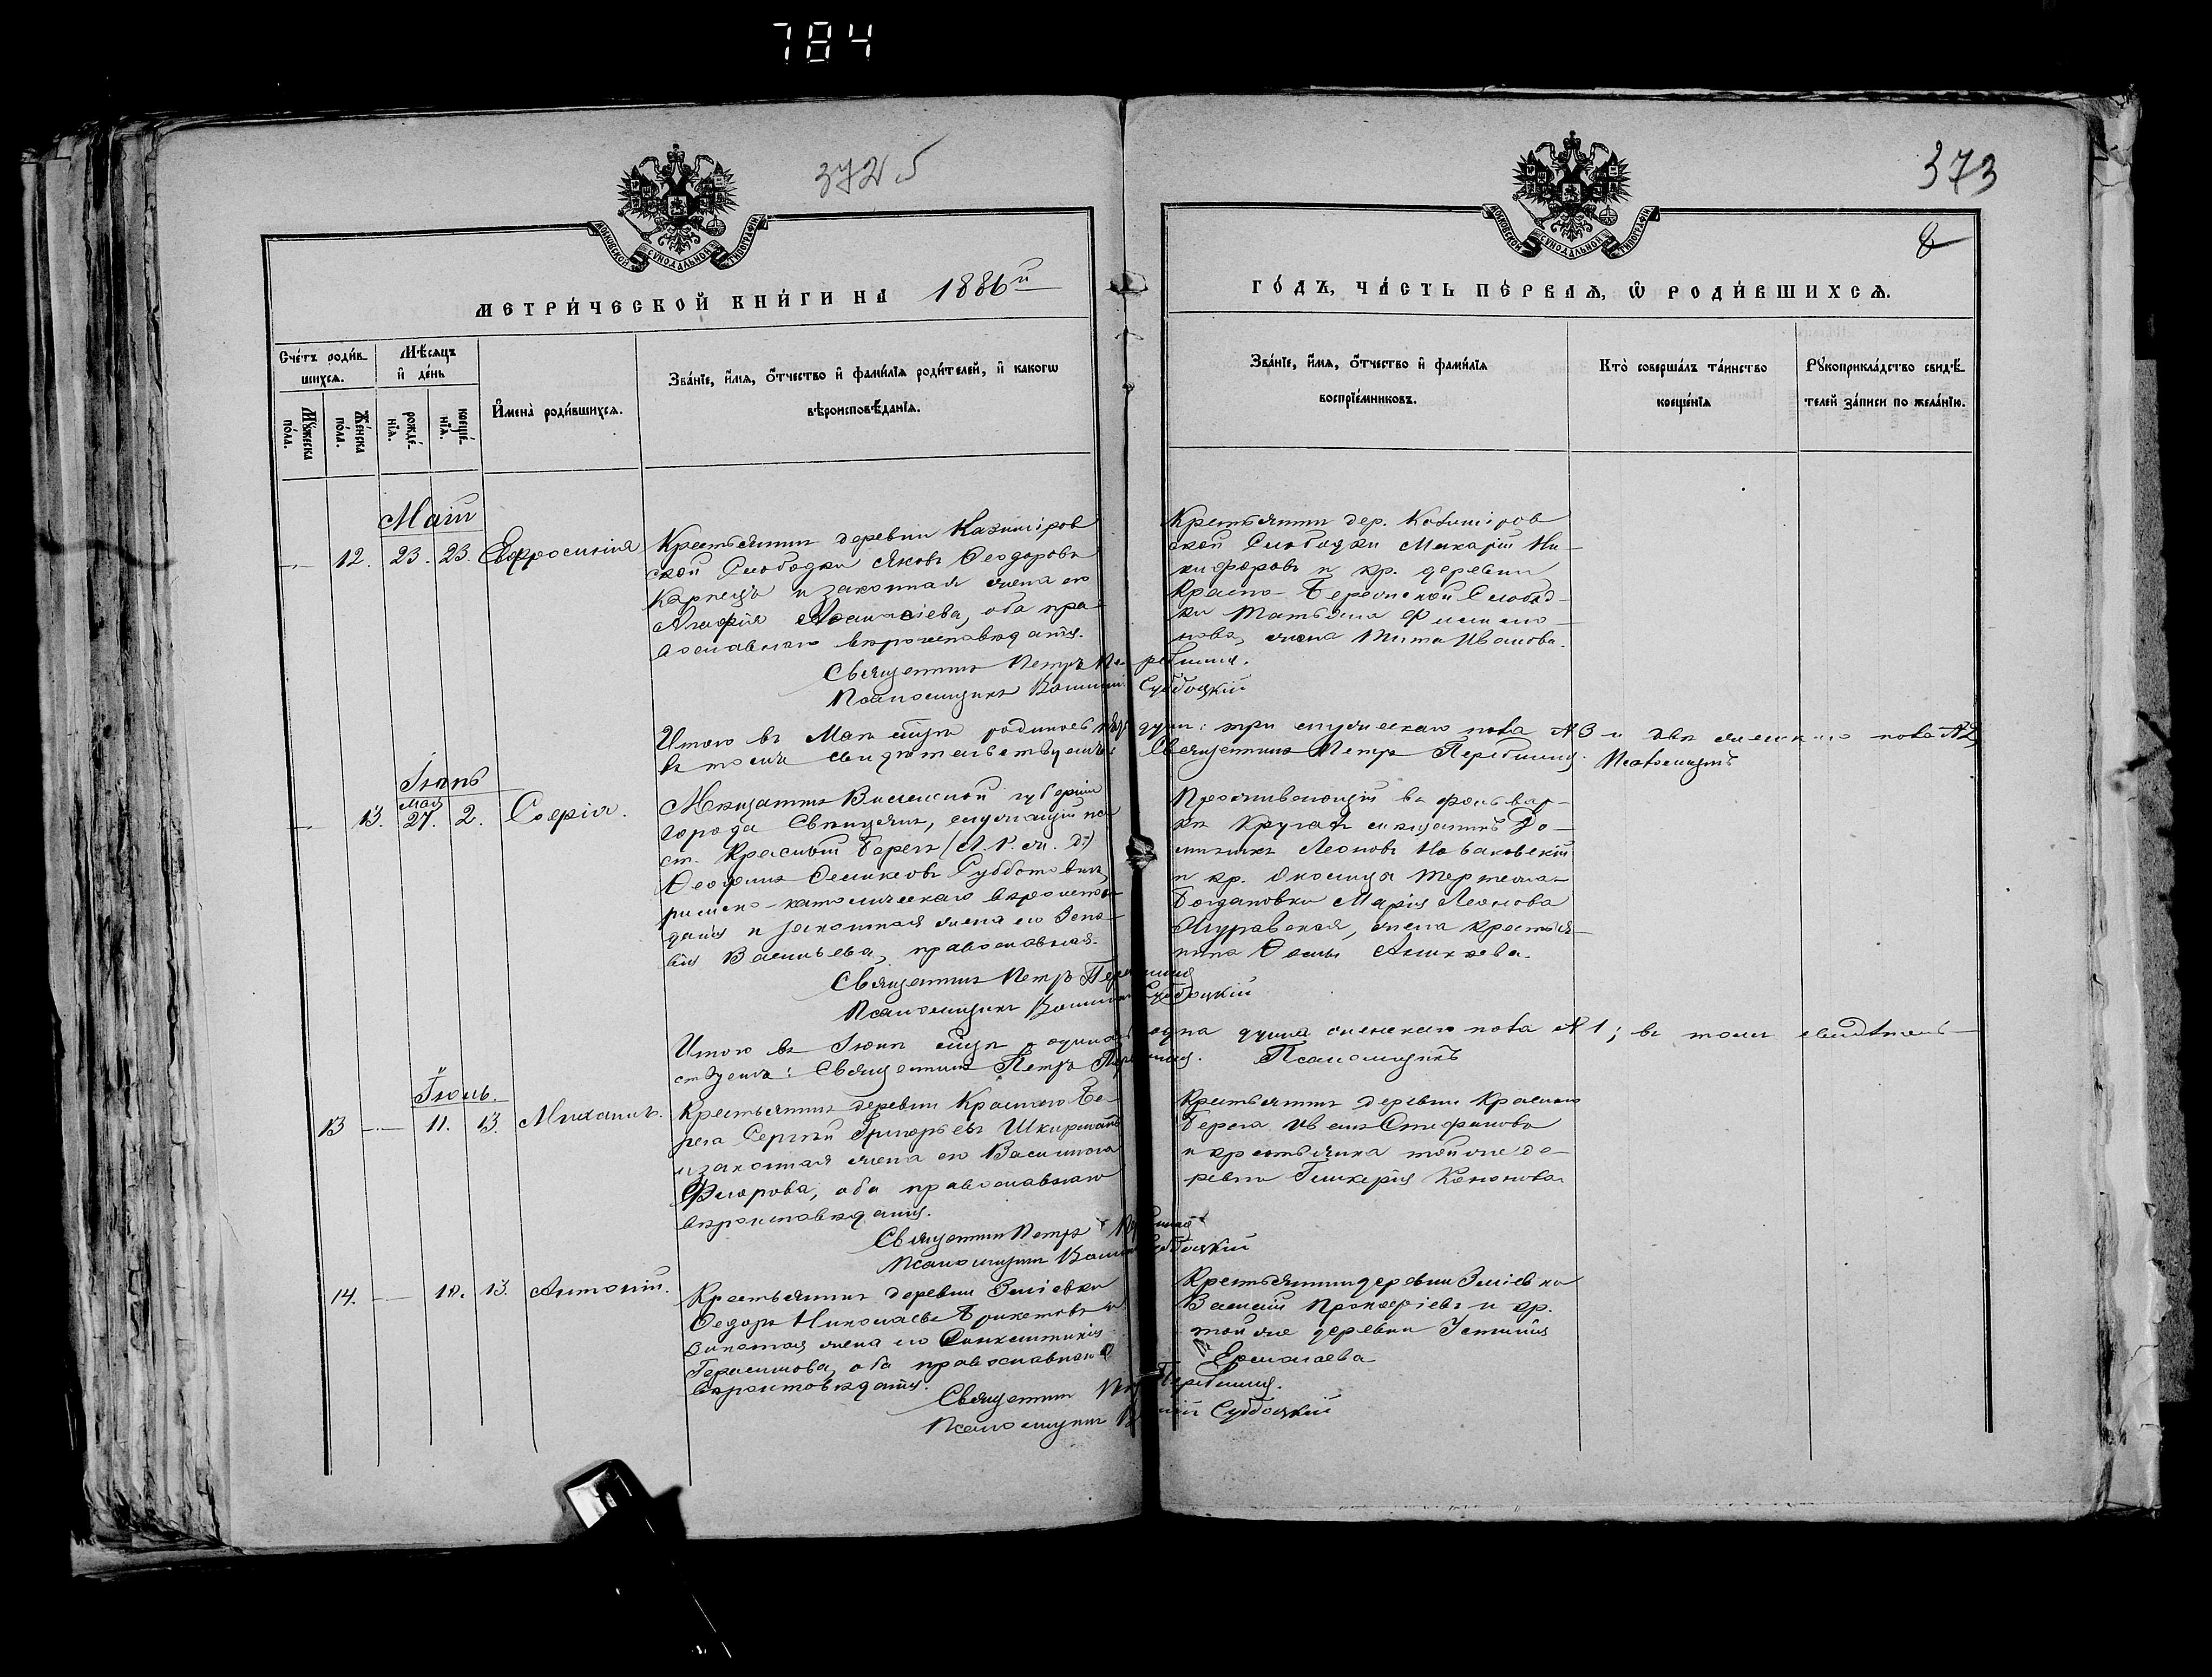 784
372 5
373
8
МОСКОВСКОЙ СѴНОДАЛЬНОЙ ТИПОГРАФІИ
МОСКОВСКОЙ СѴНОДАЛЬНОЙ ТИПОГРАФІИ
МЕТРИ́ЧЕСКОЙ КНИ́ГИ НА 1886й
ГО́ДЪ, ЧА́СТЬ ПЕ́РВАѦ, Ѡ РОДИ́ВШИХСѦ.
Сче́тъ роди́в
шихсѧ.
Мѣ́сѧцъ
и де́нь
Мꙋ́жеска
по́ла.
Же́нска
по́ла.
рожде́
нїѧ.
креще́
нїѧ.
Имена̀ роди́вшихсѧ.
Зва́нїе, и́мѧ, о́тчество и фами́лїѧ роди́телей, и како́гѡ
вѣроисповѣ́данїѧ.
Зва́нїе, и́мѧ, о́тчество и фами́лїѧ
воспрїе́мниковъ.
Кто̀ соверша́лъ та́инство
креще́нїѧ
Рꙋкоприкла́дство свидѣ́
телей за́писи по жела́нїю.
Май
12. 23. 23. Евфросинія
Крестьянинъ деревни Казимиров
ской Слободки Яковъ Ѳеодоровъ
Карпецъ и законная жена его
Агафія Аѳанасіева, оба пра
вославнаго вѣроисповѣданія.
Священникъ Петръ
Псаломщикъ Субоцкій
Крестьянинъ дер. Казимиров
ской Слободки Макарій Ни-
кифоровъ и кр. деревни
Красно-Бережской Слобод-
ки Татьяна Филимо-
нова, жена Тита Иванова.
Итого въ Маѣ мѣсяцѣ родилось душъ: три мужескаго пола № 3 и двѣ женскаго пола № 2,
въ томъ свидѣтельствуемъ: Священникъ Петръ Псаломщикъ
Іюнь
13. Мая 27. 2. Софія.
Мѣщанинъ Виленской губерніи
города Свѣнцянъ, служащій на
ст. Красный Берегъ (Л. Р. ж. д.)
Ѳеофилъ Феликсовъ Субботовичъ,
римско-католическаго вѣроиспове-
данія и законная жена его Зено-
вія Васильева, православная.
Священникъ Петръ
Псаломщикъ Субоцкій
Проживающій въ фольвар-
кѣ Кругахъ мѣщанинъ До-
миникъ Леоновъ Новаковскій
и кр. околицы Тертежа-
Богдановки Марія Леонова
Журавская, жена крестья-
нина Ѳомы Алексѣева.
Итого въ Іюнѣ мѣсяцѣ родилась одна душа женскаго пола № 1; въ томъ свидѣтель-
ствуемъ: Священникъ Петръ Псаломщикъ
Іюль.
13 11. 13. Михаилъ.
Крестьянинъ деревни Краснаго Бе-
рега Сергѣй Григорьевъ
и законная жена его Василиса
Флорова, оба православнаго
вѣроисповѣданія.
Священникъ Петръ
Псаломщикъ Субоцкій
Крестьянинъ деревни Краснаго
Берега Стефановъ
и крестьянка той же де-
ревни Гликерія Кононова
14. 10. 13. Антоній.
Крестьянинъ деревни Зміевки
Ѳедоръ Николаевъ и
законная жена его Синклитикія
Герасимова, оба православнаго
вѣроисповѣданія.
Священникъ
Псаломщикъ Субоцкій
Крестьянинъ деревни Зміевки
Василій Прокофіевъ и кр.
той же деревни Устинія
Ермолаева